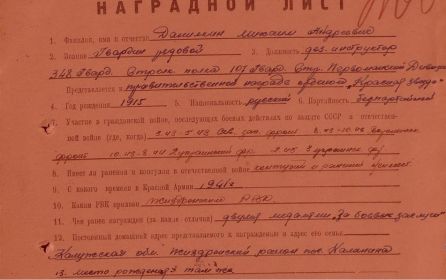 НАГРАДНОЙ ЛИСТ
1. Фамилия, имя и отчество Данилкин Михаил Андреевич
2. Звание Гвардии рядовой 3. Должность дез. инструктор
348 Гвард. Стрелк. полка 107 Гвард. Стр. Первомайской Дивизии
Представляется к правительственной награде ордену "Красная звезда"
4. Год рождения 1915 5. Национальность русский 6. Партийность беспартийный
7. Участие в гражданской войне, последующих боевых действиях по защите СССР и отечествен-
ной войне (где, когда) 3.43-5.43 Сев. зап. фронт 8.43-10.43
фронт 10.43-8.44 2 украинский фр. 2.45 3 украинск. фр.
8. Имеет ли ранения и контузии в отечественной войне
9. С какого времени в Красной Армии 1941г
10. Каким РВК призван Жиздринский РВК
11. Чем ранее награжден (за какие отличия) двумя медалями "За боевые заслуги"
12. Постоянный домашний адрес представляемого к награждению и адрес его семьи
Калужская обл. Жиздринский район пос. Калинина
13. место рождения там же